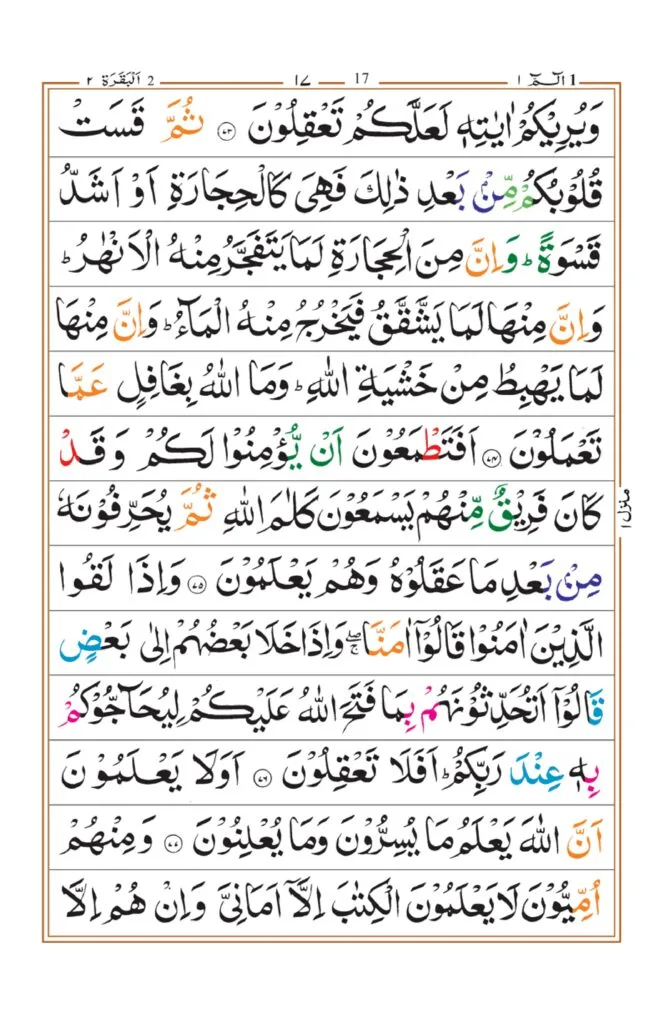 الٓمّٓ ١ 1 17 ١٧ 2 اَلْبَقَرَة ٢
وَيُرِيْكُمْ اٰيٰتِهٖ لَعَلَّكُمْ تَعْقِلُوْنَ ٧٣ ثُمَّ قَسَتْ
قُلُوْبُكُمْ مِّنْۢ بَعْدِ ذٰلِكَ فَهِىَ كَالْحِجَارَةِ اَوْ اَشَدُّ
قَسْوَةً ؕ وَاِنَّ مِنَ الْحِجَارَةِ لَمَا يَتَفَجَّرُ مِنْهُ الْاَنْهٰرُ ؕ
وَاِنَّ مِنْهَا لَمَا يَشَّقَّقُ فَيَخْرُجُ مِنْهُ الْمَآءُ ؕ وَاِنَّ مِنْهَا
لَمَا يَهْبِطُ مِنْ خَشْيَةِ اللّٰهِ ؕ وَمَا اللّٰهُ بِغَافِلٍ عَمَّا
تَعْمَلُوْنَ ٧٤ اَفَتَطْمَعُوْنَ اَنْ يُّؤْمِنُوْا لَكُمْ وَقَدْ
كَانَ فَرِيْقٌ مِّنْهُمْ يَسْمَعُوْنَ كَلٰمَ اللّٰهِ ثُمَّ يُحَرِّفُوْنَهٗ
مِنْۢ بَعْدِ مَا عَقَلُوْهُ وَهُمْ يَعْلَمُوْنَ ٧٥ وَاِذَا لَقُوا
الَّذِيْنَ اٰمَنُوْا قَالُوْٓا اٰمَنَّا ۖۚ وَاِذَا خَلَا بَعْضُهُمْ اِلٰى بَعْضٍ
قَالُوْٓا اَتُحَدِّثُوْنَهُمْ بِمَا فَتَحَ اللّٰهُ عَلَيْكُمْ لِيُحَآجُّوْكُمْ
بِهٖ عِنْدَ رَبِّكُمْ ؕ اَفَلَا تَعْقِلُوْنَ ٧٦ اَوَلَا يَعْلَمُوْنَ
اَنَّ اللّٰهَ يَعْلَمُ مَا يُسِرُّوْنَ وَمَا يُعْلِنُوْنَ ٧٧ وَمِنْهُمْ
اُمِّيُّوْنَ لَا يَعْلَمُوْنَ الْكِتٰبَ اِلَّآ اَمَانِىَّ وَاِنْ هُمْ اِلَّا
منزل ١